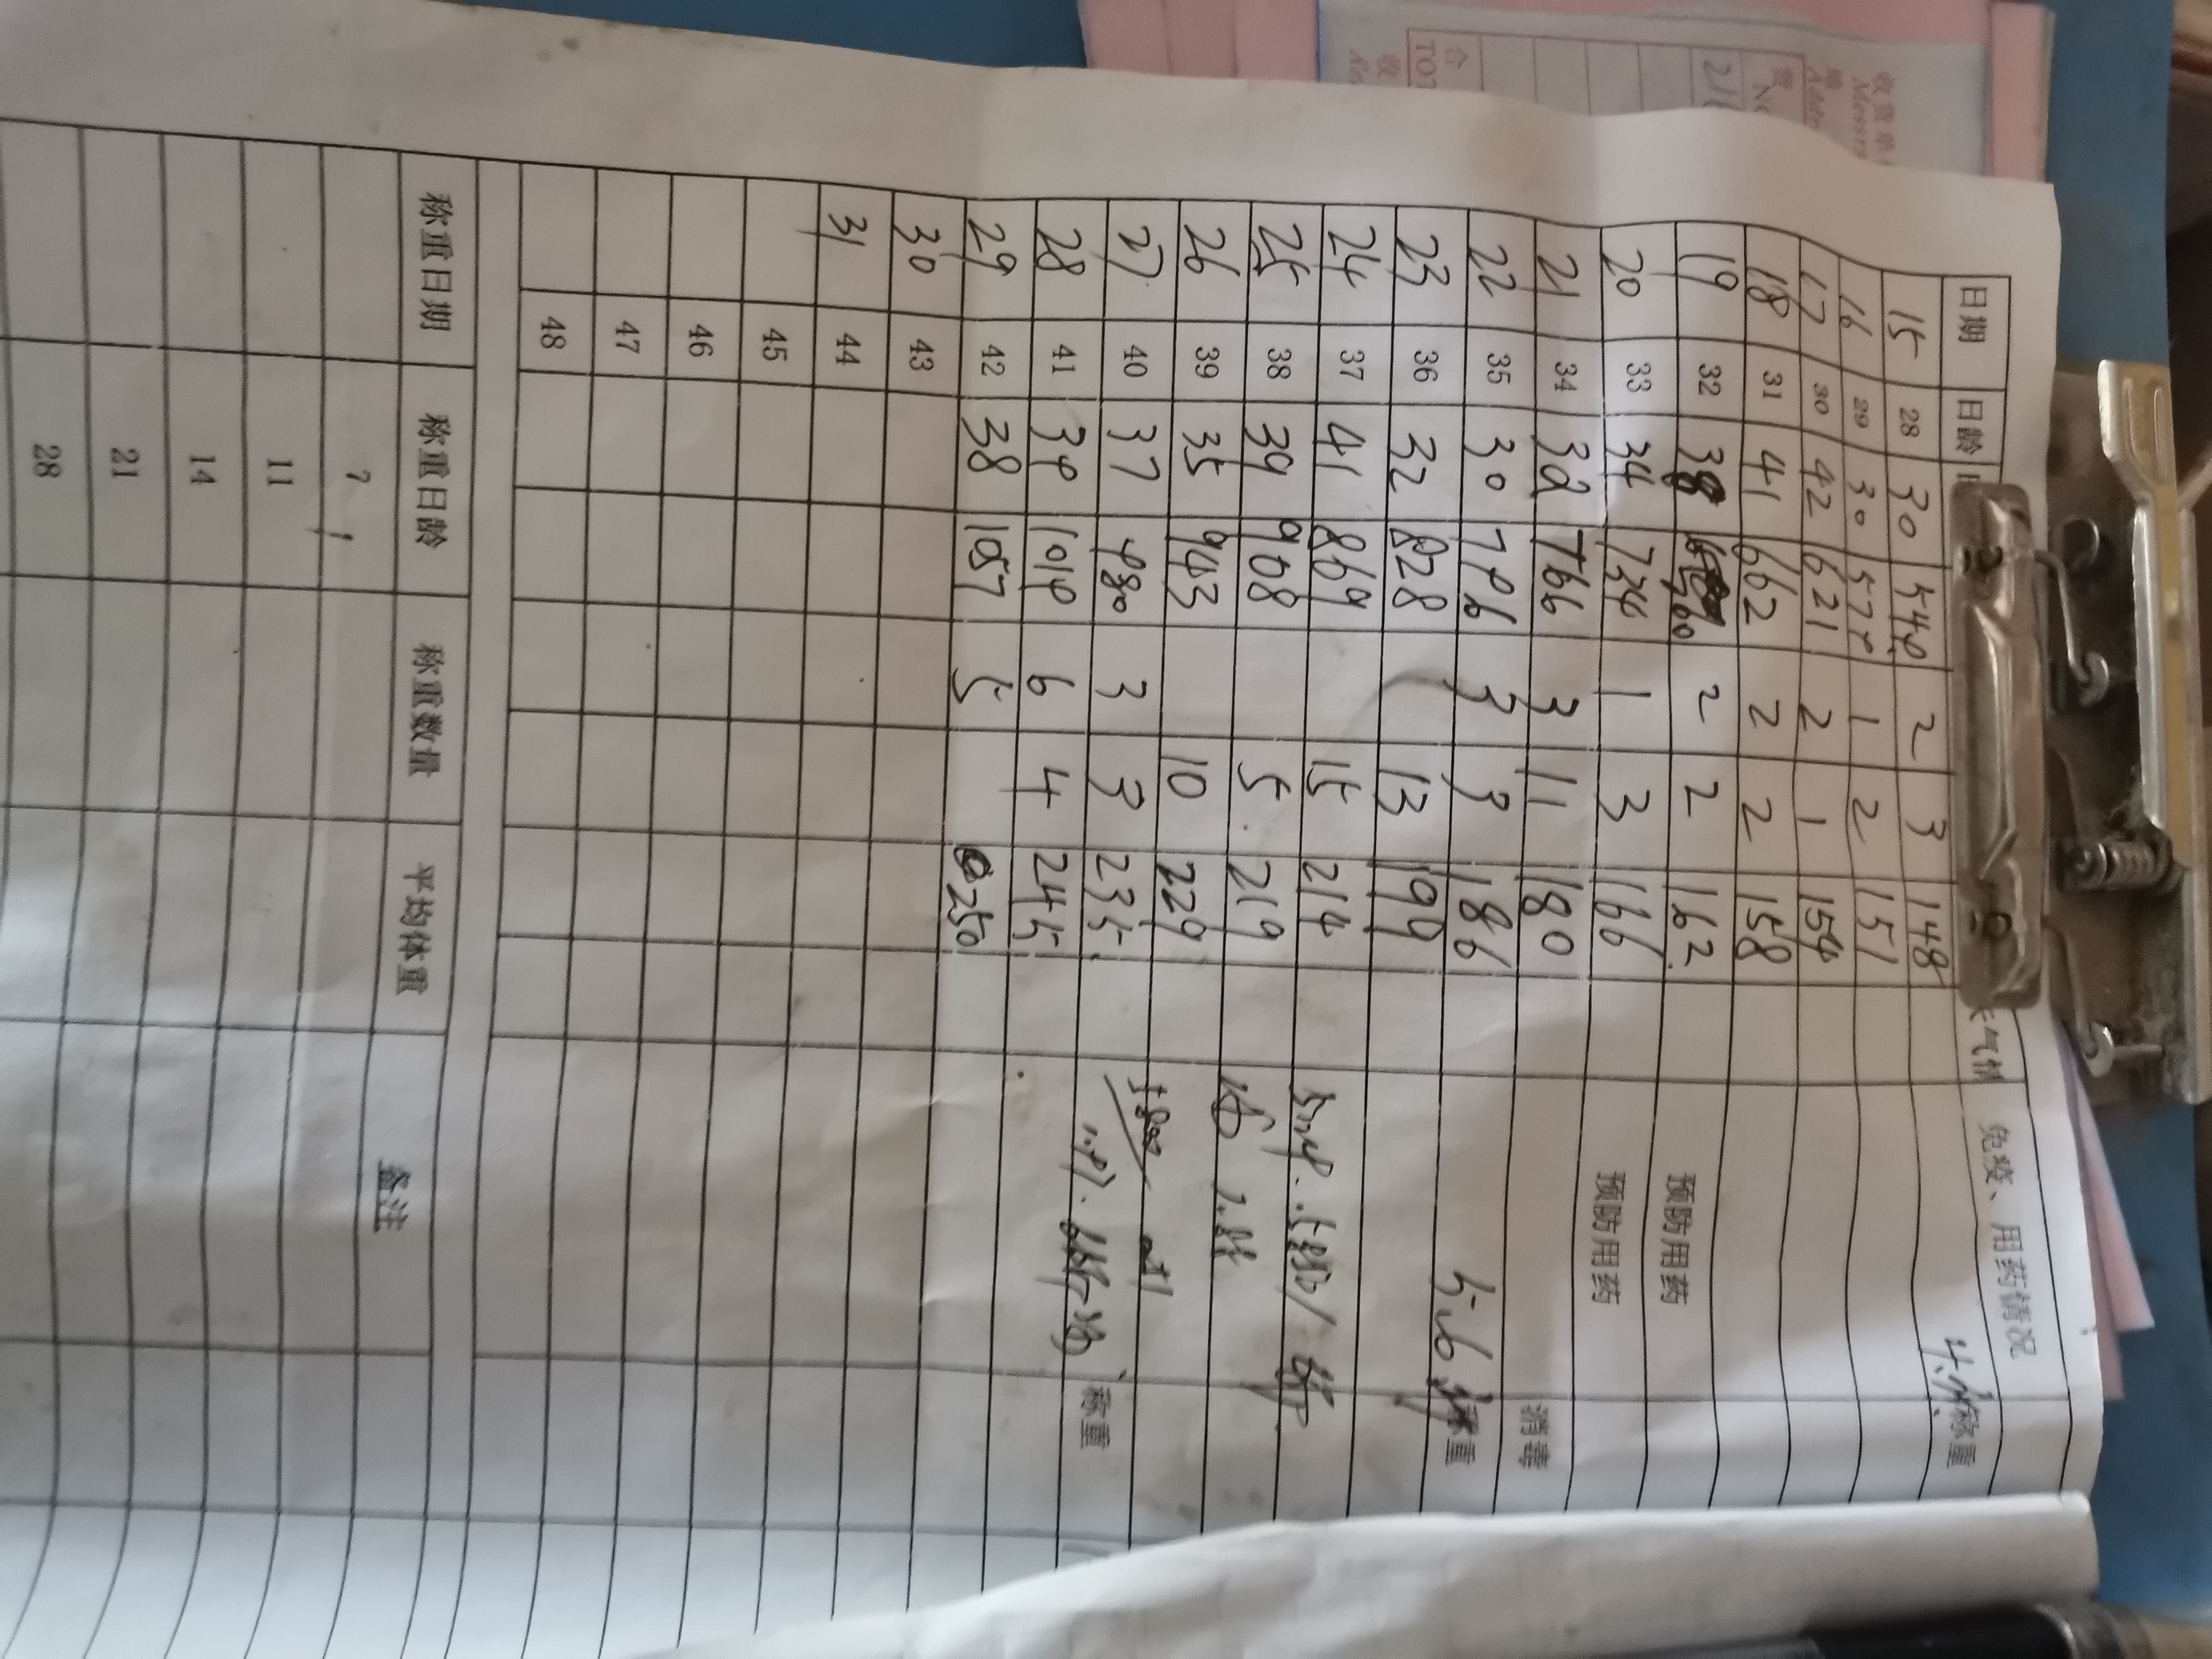 日期 日龄 天气情 免疫、用药情况
15 28 30 540 2 3 148 称重
16 29 30 579 1 2 151
17 30 42 621 2 1 154
18 31 41 662 2 2 158
19 32 38 2 2 162 预防用药
20 33 34 734 1 3 166 预防用药
21 34 32 766 3 11 180 消毒
22 35 30 796 3 3 186 5.6 称重
23 36 32 828 13 199
24 37 41 869 15 214
25 38 39 908 5 219
26 39 35 943 10 229
27 40 37 980 3 3 235
28 41 39 1019 6 4 245 称重
29 42 38 1057 5 250
30 43
31 44
45
46
47
48
称重日期 称重日龄 称重数量 平均体重 备注
7
11
14
21
28